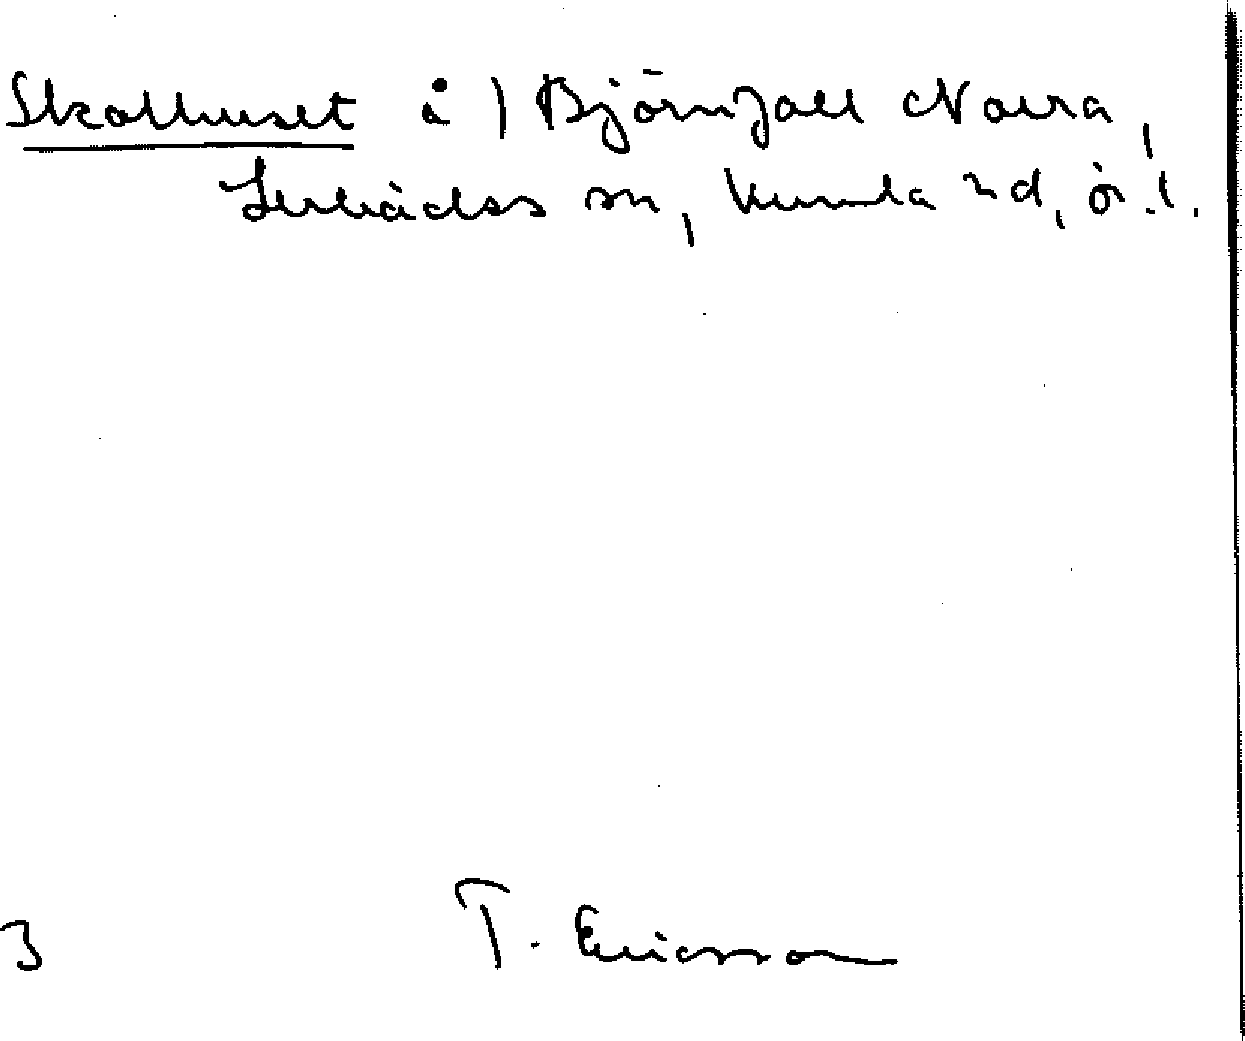 Skolhuset å) Björnfall Norra,
Lerbäcks sn, Kumla hd, ör.l.
3 T. Ericsson